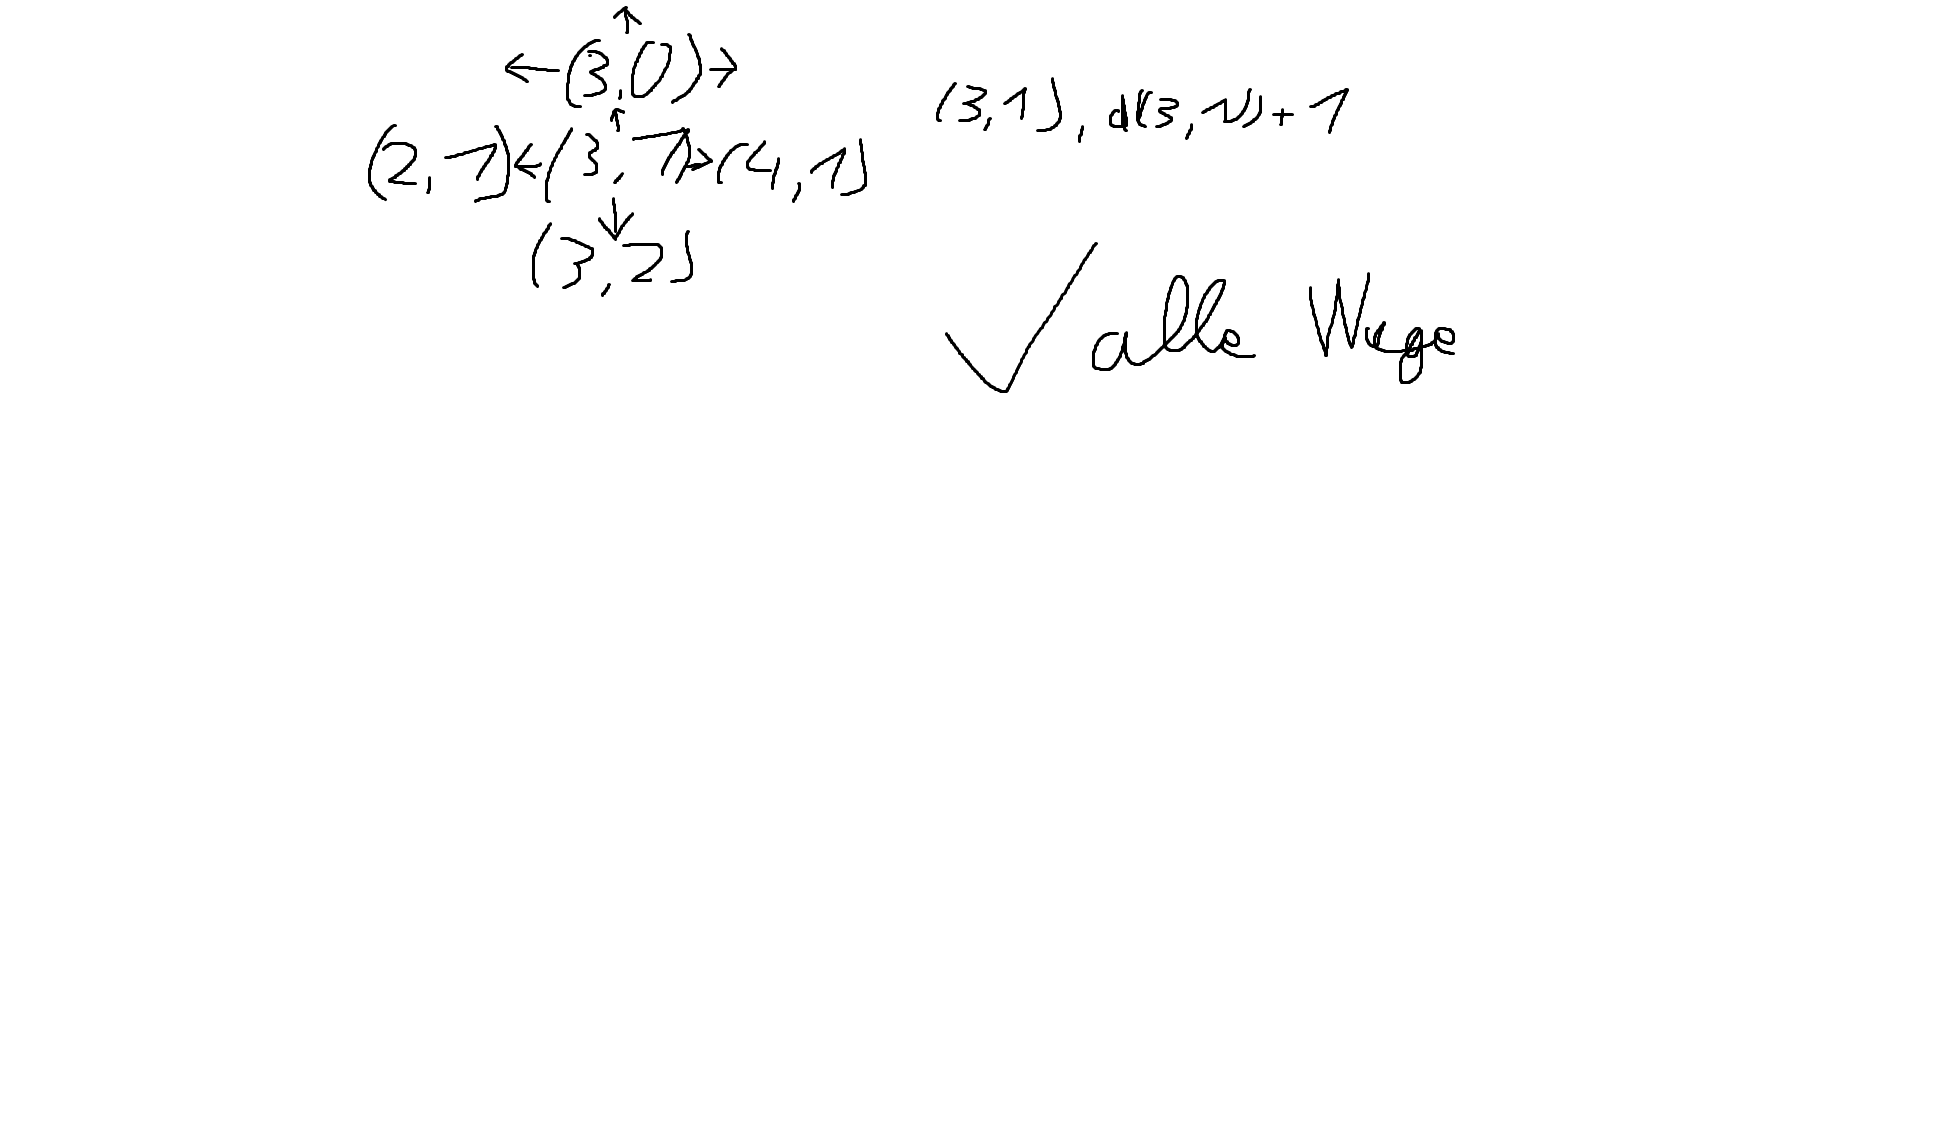 ↑
←(3,0)→
↑
(2,1)←(3,1)→(4,1)
↓
(3,2)
(3,1), d(3,1)+1
✓ alle Wege